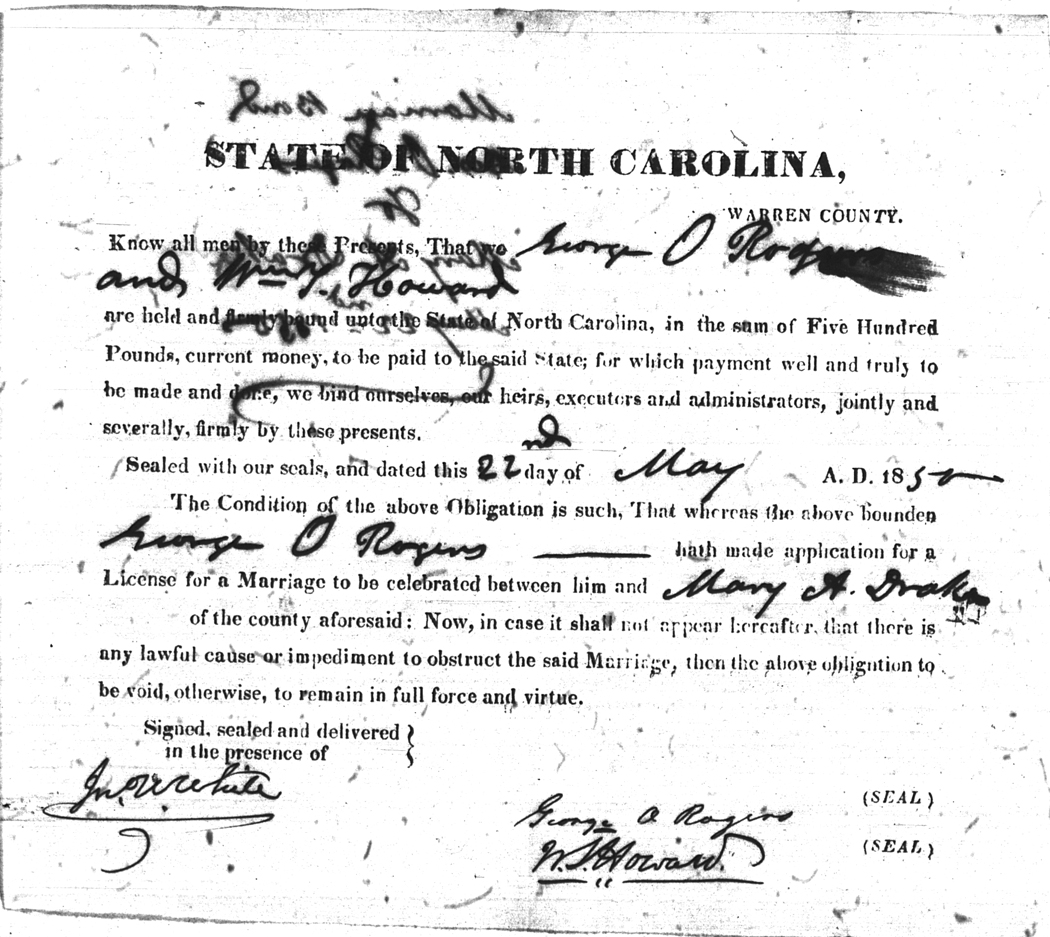 STATE OF NORTH CAROLINA,
WARREN COUNTY.
Know all men by these Presents, That we George O Rogers
and Wm. T. Howard
are held and firmly bound unto the State of North Carolina, in the sum of Five Hundred
Pounds, current money, to be paid to the said State; for which payment well and truly to
be made and done, we bind ourselves, our heirs, executors and administrators, jointly and
severally, firmly by these presents.
Sealed with our seals, and dated this 22nd day of May A. D. 1850
The Condition of the above Obligation is such, That whereas the above bounden
George O Rogers hath made application for a
License for a Marriage to be celebrated between him and Mary A. Drake
of the county aforesaid: Now, in case it shall not appear hereafter, that there is
any lawful cause or impediment to obstruct the said Marriage, then the above obligation to
be void, otherwise, to remain in full force and virtue.
Signed, sealed and delivered
in the presence of
Jno. W White
George O Rogers (SEAL)
Howard. (SEAL)